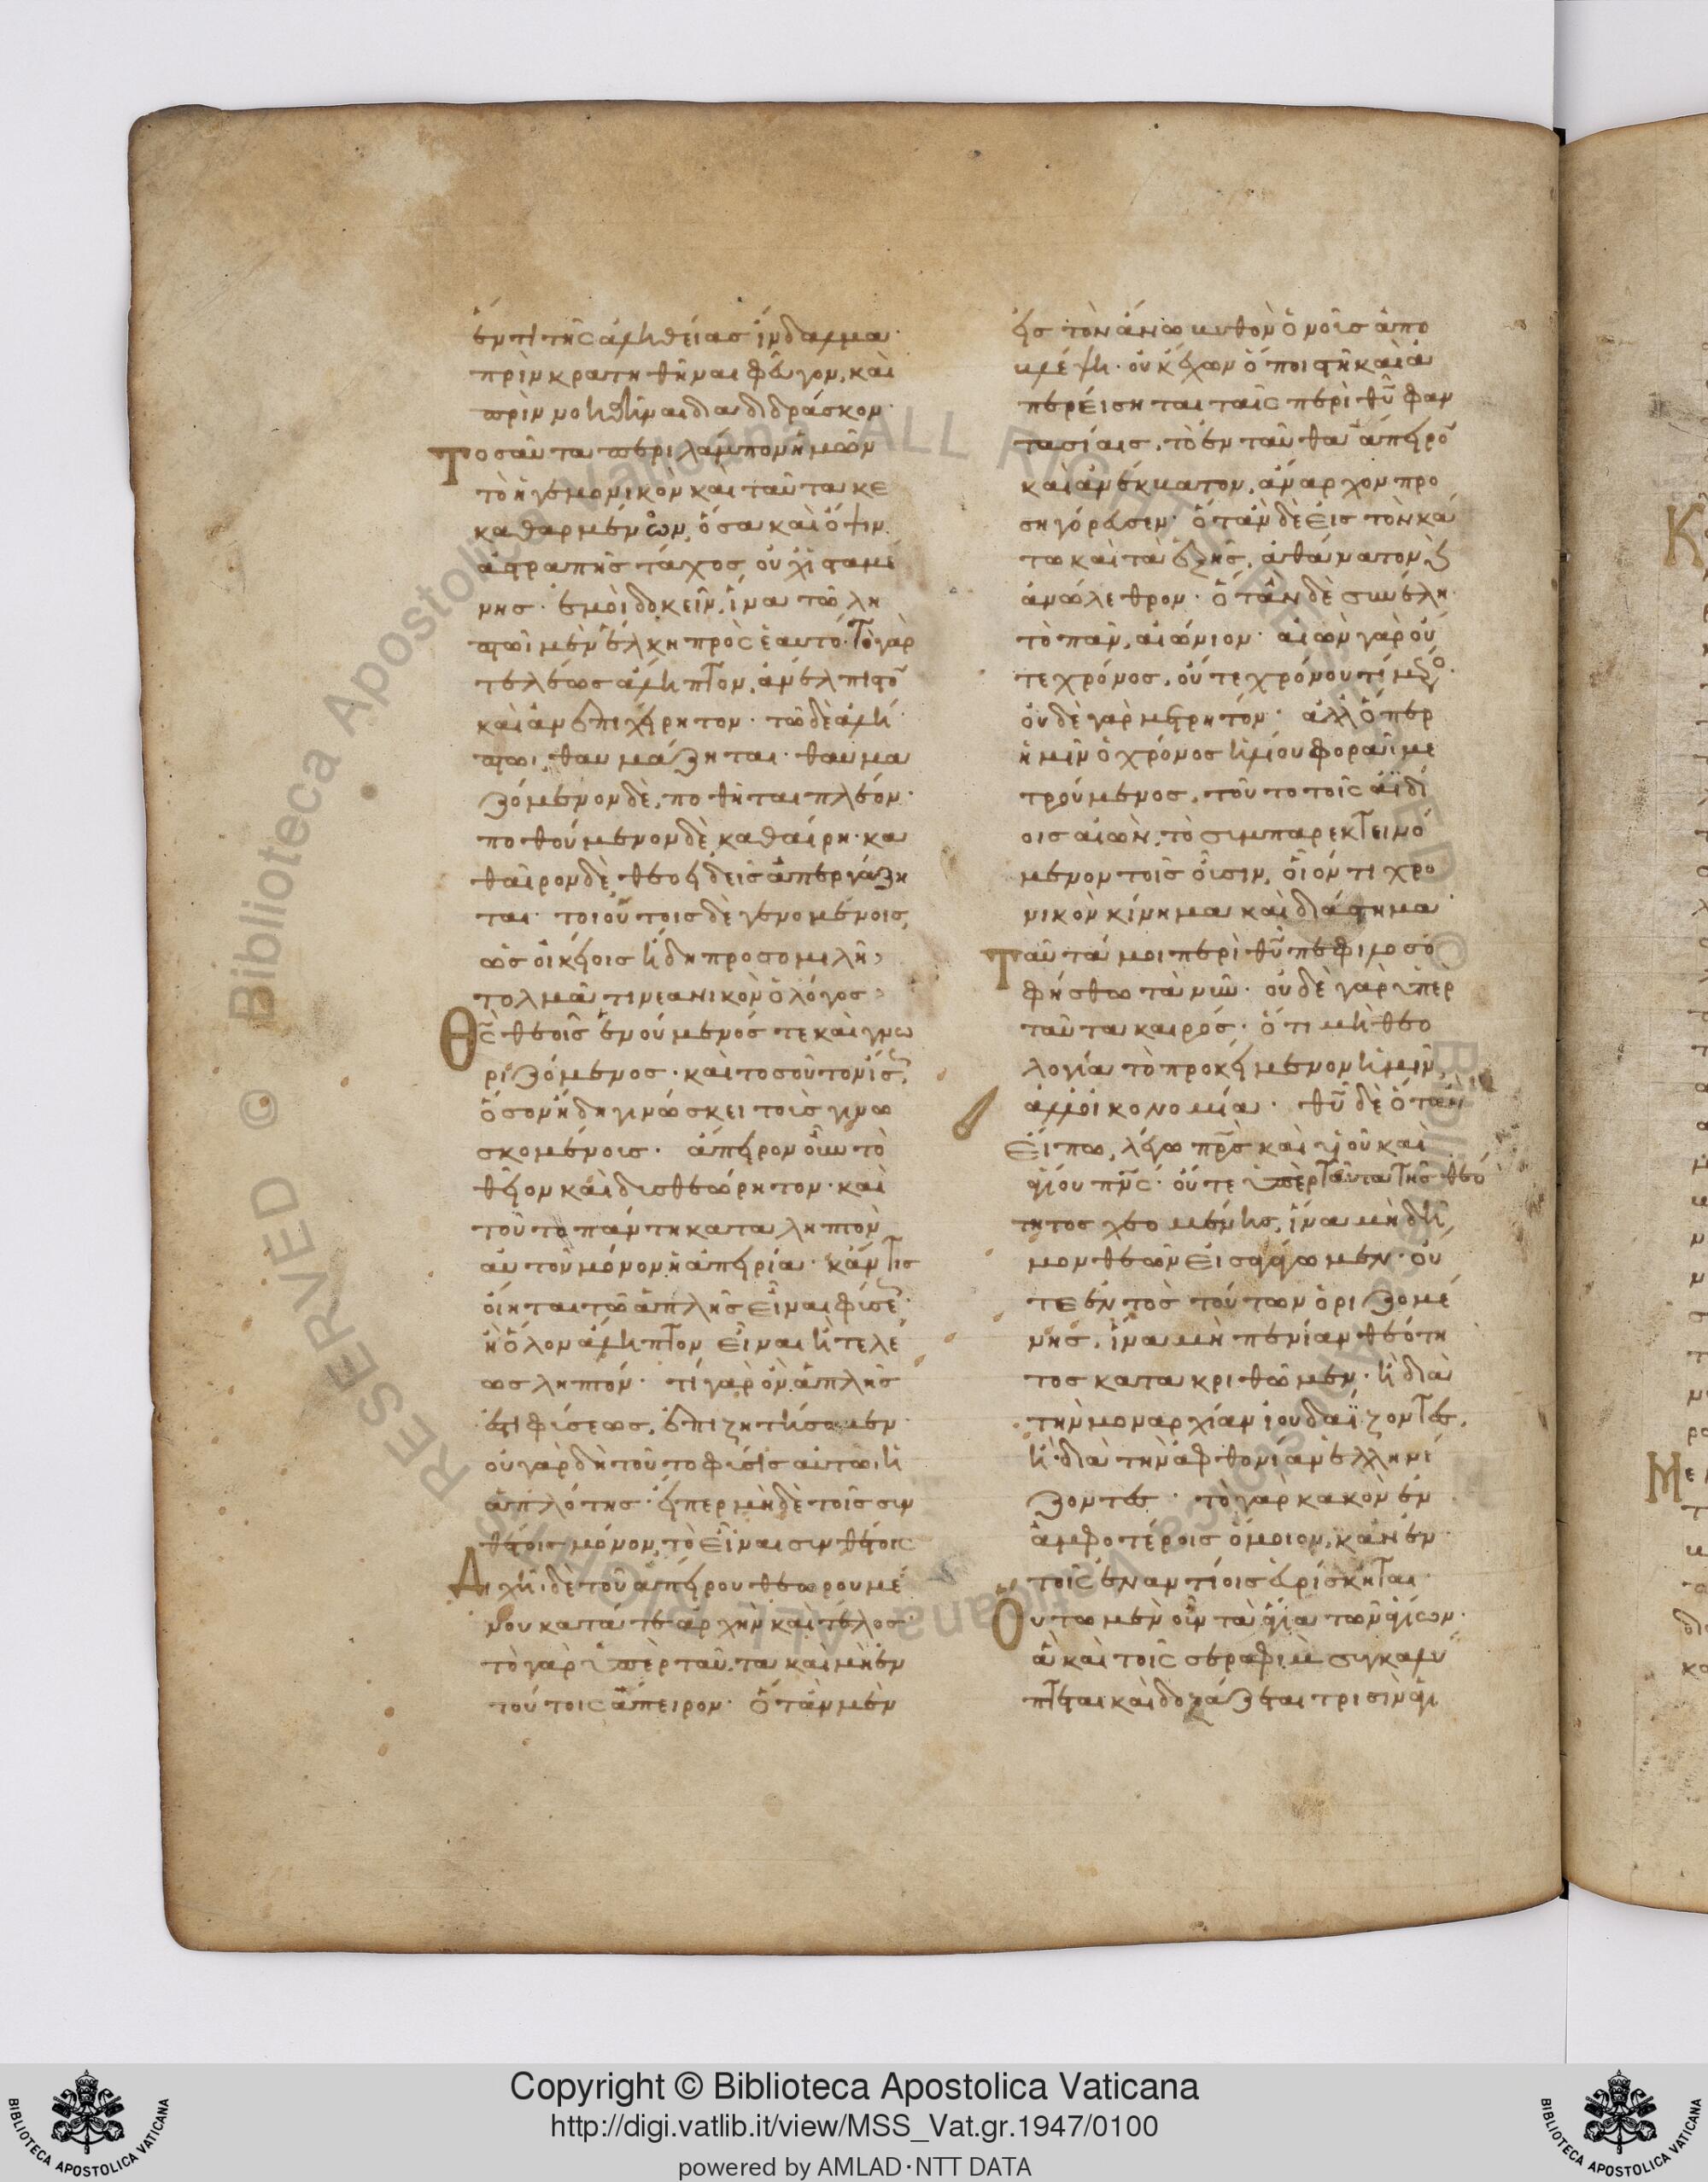 ἕν τι τῆς ἀληθείας ἴνδαλμα·
πρὶν κρατηθῆναι φεύγον, καὶ
πρὶν νοηθῆναι διαδιδράσκον·
Τοσαῦτα περιλάμπον ἡμῶν
τὸ ἡγεμονικὸν καὶ ταῦτα κε
καθαρμένων, ὅσα καὶ ὄψιν
ἀστραπῆς τάχος οὐχ ἱσταμέ
νης· ἐμοὶ δοκεῖν, ἵνα τῶ λη
πτῶι μὲν ἕλκη πρὸς ἑαυτό· Τὸ γὰρ
τελέως ἄληπτον, ἀνέλπιστον
καὶ ἀνεπιχείρητον· τῶ δὲ ἀλή
πτωι, θαυμάζηται· θαυμα
ζόμενον δὲ, ποθῆται πλέον·
ποθούμενον δὲ καθαίρη· κα
θαῖρον δὲ, θεοειδεῖς ἀπεργάζη
ται· τοιούτοις δὲ γενομένοις,
ὡς οἰκείοις ἤδη προσομιλῆ,
τολμᾶ τι νεανικὸν ὁ λόγος
Θς θεοῖς ἑνούμενός τε καὶ γνω
ριζόμενος· καὶ τοσοῦτον ἴσως
ὅσον ἤδη γινώσκει τοὺς γινω
σκομένοις· ἄπειρον οὖν τὸ
θεῖον καὶ δυσθεώρητον· καὶ
τοῦτο πάντη καταληπτὸν
αὐτοῦ μόνον ἡ ἀπειρία· κἄν τις
οἴηται τῶ ἁπλῆς εἶναι φύσεως
ἢ ὅλον ἄληπτον εἶναι ἢ τελέ
ως ληπτόν· τί γὰρ ὂν ἁπλῆς
ἐστι φύσεως, ἐπιζητήσωμεν·
οὐ γὰρ δὴ τοῦτο φύσις αὐτῶ ἡ
ἁπλότης· εἴπερ μὴ δὲ τοῖς συν
θέτοις μόνον, τὸ εἶναι συνθέτοις
Διχῆ δὲ τοῦ ἀπείρου θεωρουμέ
νου κατά τε ἀρχὴν καὶ τέλος·
τὸ γὰρ ὑπὲρ ταῦτα καὶ μὴ ἐν
τούτοις ἄπειρον· ὅταν μὲν
εἰς τὸν ἄνω βυθὸν ὁ νοῦς ἀπο
βλέψη· οὐκ ἔχων ὅποι στῆ καὶ ἀ
περείσηται ταῖς περὶ θυ φαν
τασίαις, τὸ ἐνταῦθα ἄπειρον
καὶ ἀνέκβατον, ἄναρχον προ
σηγόρευσεν· ὅταν δὲ εἰς τὸν κά
τω καὶ τὰ ἑξῆς, ἀθάνατον καὶ
ἀνώλεθρον· ὅταν δὲ συνέλη
τὸ πᾶν, αἰώνιον· αἰὼν γὰρ οὔ
τε χρόνος, οὔτε χρόνου τὶ μέρος·
οὐδὲ γὰρ μετρητόν· ἀλλ' ὅπερ
ἡμῖν ὁ χρόνος ἡλίου φορᾶ με
τρούμενος, τοῦτο τοῖς ἀϊδί
οις αἰὼν, τὸ συμπαρεκτεινό
μενον τοῖς οὖσιν, οἷόν τι χρο
νικὸν κίνημα καὶ διάστημα·
Ταῦτά μοι περὶ θυ πεφιλοσο
φήσθω τανῦν· οὐδὲ γὰρ ὑπὲρ
ταῦτα καιρός· ὅτι μὴ θεο
λογία τὸ προκείμενον ἡμῖν,
ἀλλ' οἰκονομία· θυ δὲ ὅταν
εἴπω, λέγω πρς καὶ υἱοῦ καὶ
ἁγίου πνς· οὔτε ὑπὲρ ταῦτα τῆς θεό
τητος χεομένης, ἵνα μὴ δῆ
μον θεῶν εἰσαγάγωμεν· οὔ
τε ἐντὸς τούτων ὁριζομέ
νης, ἵνα μὴ πενίαν θεότη
τος κατακριθῶμεν· ἢ διὰ
τὴν μοναρχίαν ἰουδαΐζοντες,
ἢ διὰ τὴν ἀφθονίαν ἑλληνί
ζοντες· τὸ γὰρ κακὸν ἐν
ἀμφοτέροις ὅμοιον, κἂν ἐν
τοῖς ἐναντίοις εὑρίσκηται·
Οὕτω μὲν οὖν τὰ ἅγια τῶν ἁγίων·
ἃ καὶ τοῖς σεραφὶμ συγκαλύ
πτεται καὶ δοξάζεται τρισὶν ἁγι
Κ
Μ
Copyright © Biblioteca Apostolica Vaticana
http://digi.vatlib.it/view/MSS_Vat.gr.1947/0100
powered by AMLAD·NTT DATA
BIBLIOTECA APOSTOLICA VATICANA
BIBLIOTECA APOSTOLICA VATICANA